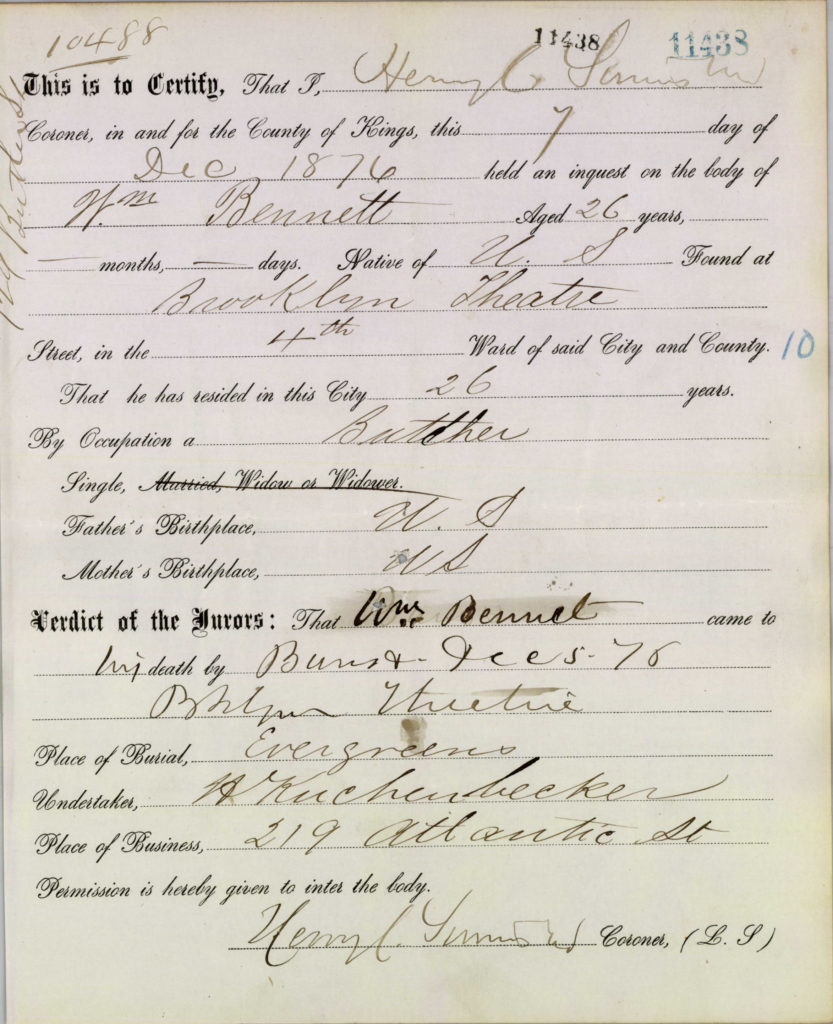 10488
11438 11438
This is to Certify, That I, Henry C Simms MD
Coroner, in and for the County of Kings, this 7 day of
Dec 1876 held an inquest on the body of
Wm Bennett Aged 26 years,
— months, — days. Native of U. S Found at
Brooklyn Theatre
Street, in the 4th Ward of said City and County. 10
That he has resided in this City 26 years.
By Occupation a Butcher
Single, Married, Widow or Widower.
Father's Birthplace, U. S
Mother's Birthplace, U S
Verdict of the Jurors: That Wm Bennet came to
his death by Burns Dec 5-76
Bklyn Theatre
Place of Burial, Evergreens
Undertaker, H Kuchenbecker
Place of Business, 219 Atlantic St
Permission is hereby given to inter the body.
Henry C. Simms MD Coroner, (L. S)